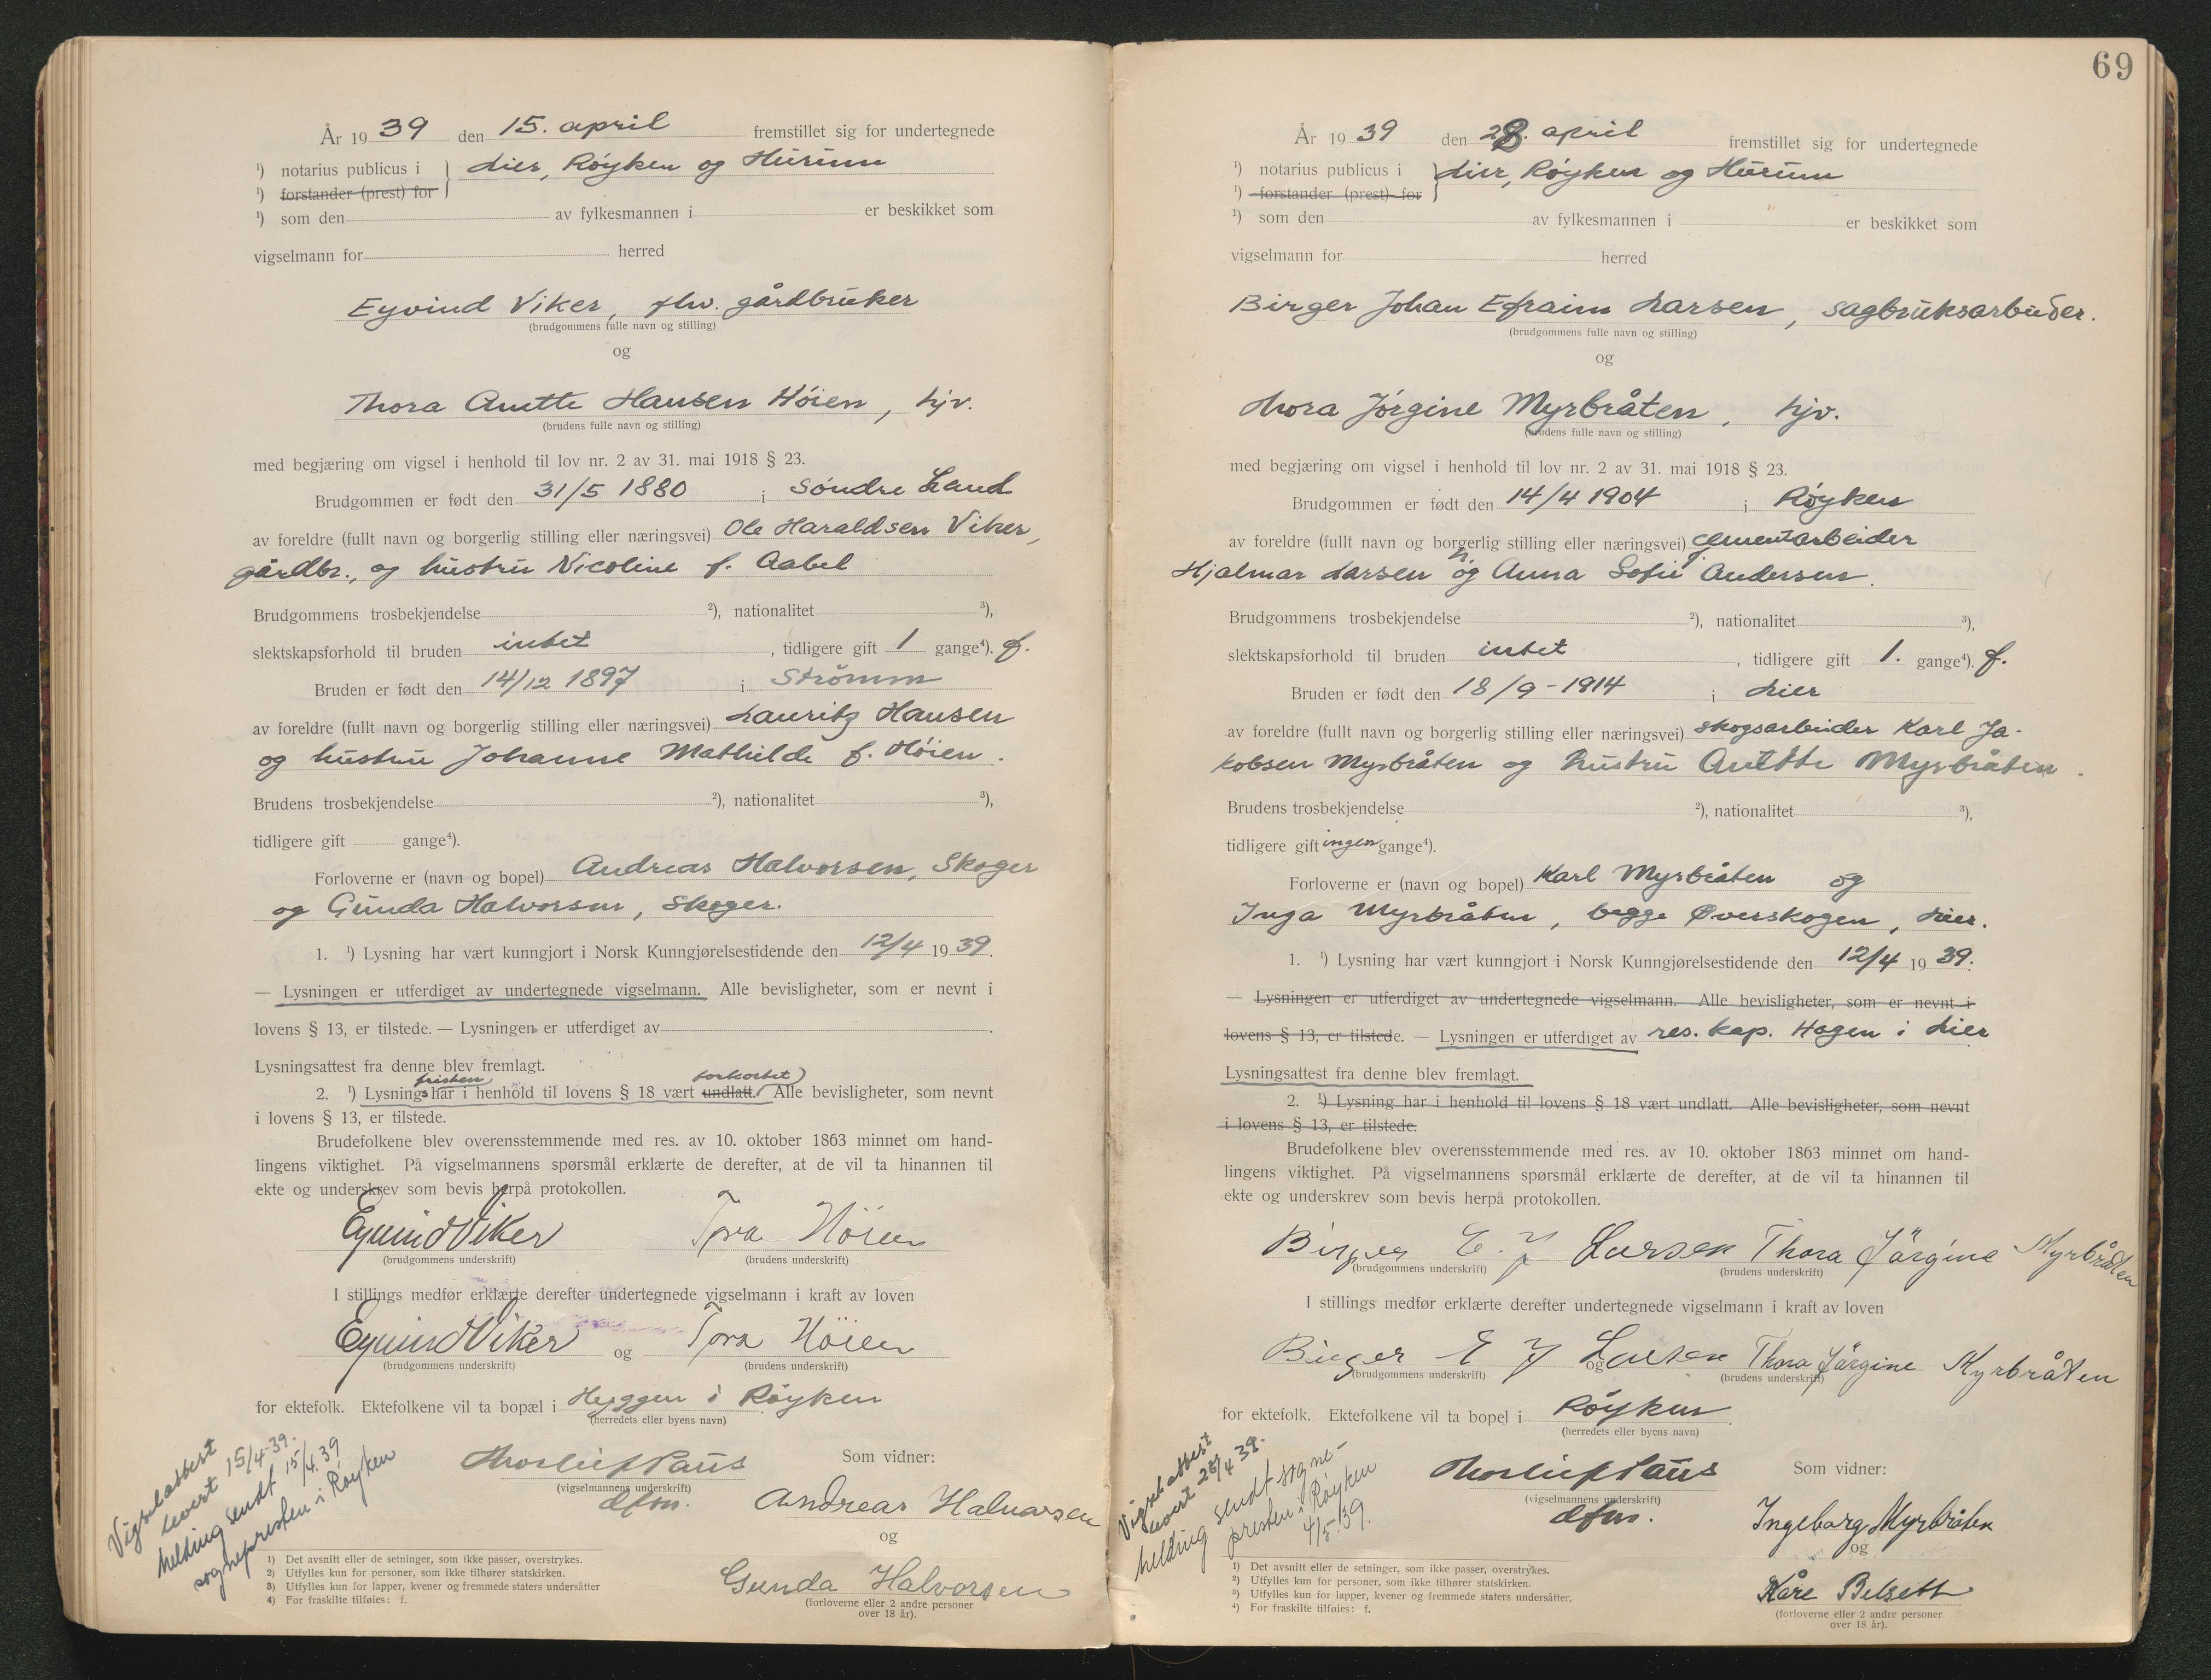 År 19 39 den 15. april fremstillet sig for undertegnede
¹) notarius publicus i } Lier, Røyken og Hurum
¹) forstander (prest) for
¹) som den av fylkesmannen i er beskikket som
vigselmann for herred
Eyvind Viker, fhv. gårdbruker
(brudgommens fulle navn og stilling)
og
Thora Anette Hansen Höien, hjv.
(brudens fulle navn og stilling)
med begjæring om vigsel i henhold til lov nr. 2 av 31. mai 1918 § 23.
Brudgommen er født den 31/5 1880 i Söndre Land
av foreldre (fullt navn og borgerlig stilling eller næringsvei) Ole Haraldsen Viker,
gårdbr., og hustru Nicoline f. Aabel
Brudgommens trosbekjendelse ²), nationalitet ³),
slektskapsforhold til bruden intet, tidligere gift 1 gange⁴). f.
Bruden er født den 14/12 1897 i Strømm
av foreldre (fullt navn og borgerlig stilling eller næringsvei) Lauritz Hansen
og hustru Johanne Mathilde f. Höien.
Brudens trosbekjendelse ²), nationalitet ³),
tidligere gift gange⁴).
Forloverne er (navn og bopel) Andreas Halvorsen, Skoger
og Gunda Halvorsen, Skoger.
1. ¹) Lysning har vært kunngjort i Norsk Kunngjørelsestidende den 12/4 19 39.
— Lysningen er utferdiget av undertegnede vigselmann. Alle bevisligheter, som er nevnt i
lovens § 13, er tilstede. — Lysningen er utferdiget av .
Lysningsattest fra denne blev fremlagt.
fristen forkortet
2. ¹) Lysnings har i henhold til lovens § 18 vært undlatt. Alle bevisligheter, som nevnt
i lovens § 13, er tilstede.
Brudefolkene blev overensstemmende med res. av 10. oktober 1863 minnet om hand-
lingens viktighet. På vigselmannens spørsmål erklærte de derefter, at de vil ta hinannen til
ekte og underskrev som bevis herpå protokollen.
Eyvind Viker Tora Höien
(brudgommens underskrift) (brudens underskrift)
I stillings medfør erklærte derefter undertegnede vigselmann i kraft av loven
Eyvind Viker og Tora Höien
(brudgommens underskrift) (brudens underskrift)
for ektefolk. Ektefolkene vil ta bopæl i Hyggen i Røyken
(herredets eller byens navn)
Vigselattest
levert 15/4-39.
Melding sendt 15/4.39
sognepresten i Røyken
Thorleif Paus Som vidner:
(vigselmannens underskrift)
dfm. Andreas Halvorsen
og
Gunda Halvorsen
(forloverne eller 2 andre personer
over 18 år).
1) Det avsnitt eller de setninger, som ikke passer, overstrykes.
2) Utfylles kun for personer, som ikke tilhører statskirken.
3) Utfylles kun for lapper, kvener og fremmede staters undersåtter
4) For fraskilte tilføies: f.
69
År 19 39 den 28. april fremstillet sig for undertegnede
¹) notarius publicus i } Lier, Røyken og Hurum
¹) forstander (prest) for
¹) som den av fylkesmannen i er beskikket som
vigselmann for herred
Birger Johan Efraim Larsen, sagbruksarbeider.
(brudgommens fulle navn og stilling)
og
Thora Jörgine Myrbråten, hjv.
(brudens fulle navn og stilling)
med begjæring om vigsel i henhold til lov nr. 2 av 31. mai 1918 § 23.
Brudgommen er født den 14/4 1904 i Røyken
av foreldre (fullt navn og borgerlig stilling eller næringsvei) cementarbeider
Hjalmar Larsen og h. Anna Sofie f. Andersen.
Brudgommens trosbekjendelse ²), nationalitet ³),
slektskapsforhold til bruden intet, tidligere gift 1. gange⁴). f.
Bruden er født den 18/9-1914 i Lier
av foreldre (fullt navn og borgerlig stilling eller næringsvei) skogsarbeider Karl Ja-
kobsen Myrbråten og hustru Anette Myrbråten.
Brudens trosbekjendelse ²), nationalitet ³),
tidligere gift ingen gange⁴).
Forloverne er (navn og bopel) Karl Myrbråten og
Inga Myrbråten, begge Øverskogen, Lier.
1. ¹) Lysning har vært kunngjort i Norsk Kunngjørelsestidende den 12/4 19 39.
— Lysningen er utferdiget av undertegnede vigselmann. Alle bevisligheter, som er nevnt i
lovens § 13, er tilstede. — Lysningen er utferdiget av res. kap. Hagen i Lier
Lysningsattest fra denne blev fremlagt.
2. ¹) Lysning har i henhold til lovens § 18 vært undlatt. Alle bevisligheter, som nevnt
i lovens § 13, er tilstede.
Brudefolkene blev overensstemmende med res. av 10. oktober 1863 minnet om hand-
lingens viktighet. På vigselmannens spørsmål erklærte de derefter, at de vil ta hinannen til
ekte og underskrev som bevis herpå protokollen.
Birger E. J Larsen Thora Jörgine Myrbråten
(brudgommens underskrift) (brudens underskrift)
I stillings medfør erklærte derefter undertegnede vigselmann i kraft av loven
Birger E J Larsen og Thora Jörgine Myrbråten
(brudgommens underskrift) (brudens underskrift)
for ektefolk. Ektefolkene vil ta bopel i Røyken
(herredets eller byens navn)
Vigselattest
levert 28/4 39.
Melding sendt sogne-
presten i Røyken
4/5.39.
Thorleif Paus Som vidner:
(vigselmannens underskrift)
dfm. Ingeborg Myrbråten
og
Kåre Belsett
(forloverne eller 2 andre personer
over 18 år).
¹) Det avsnitt eller de setninger, som ikke passer, overstrykes.
²) Utfylles kun for personer, som ikke tilhører statskirken.
³) Utfylles kun for lapper, kvener og fremmede staters undersåtter.
⁴) For fraskilte tilføies: f.